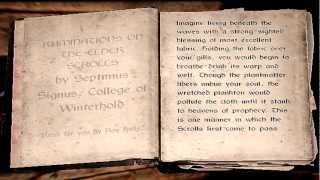 RUMINATIONS ON
THE ELDER
SCROLLS
by Septimus
Signus, College of
Winterhold
Imagine living beneath the
waves with a strong-sighted
blessing of most excellent
fabric. Holding the fabric over
your gills, you would begin to
breathe-drink its warp and
weft. Though the plantmatter
fibers imbue your soul, the
wretched plankton would
pollute the cloth until it stank
to heavens of prophecy. This
is one manner in which the
Scrolls first came to pass